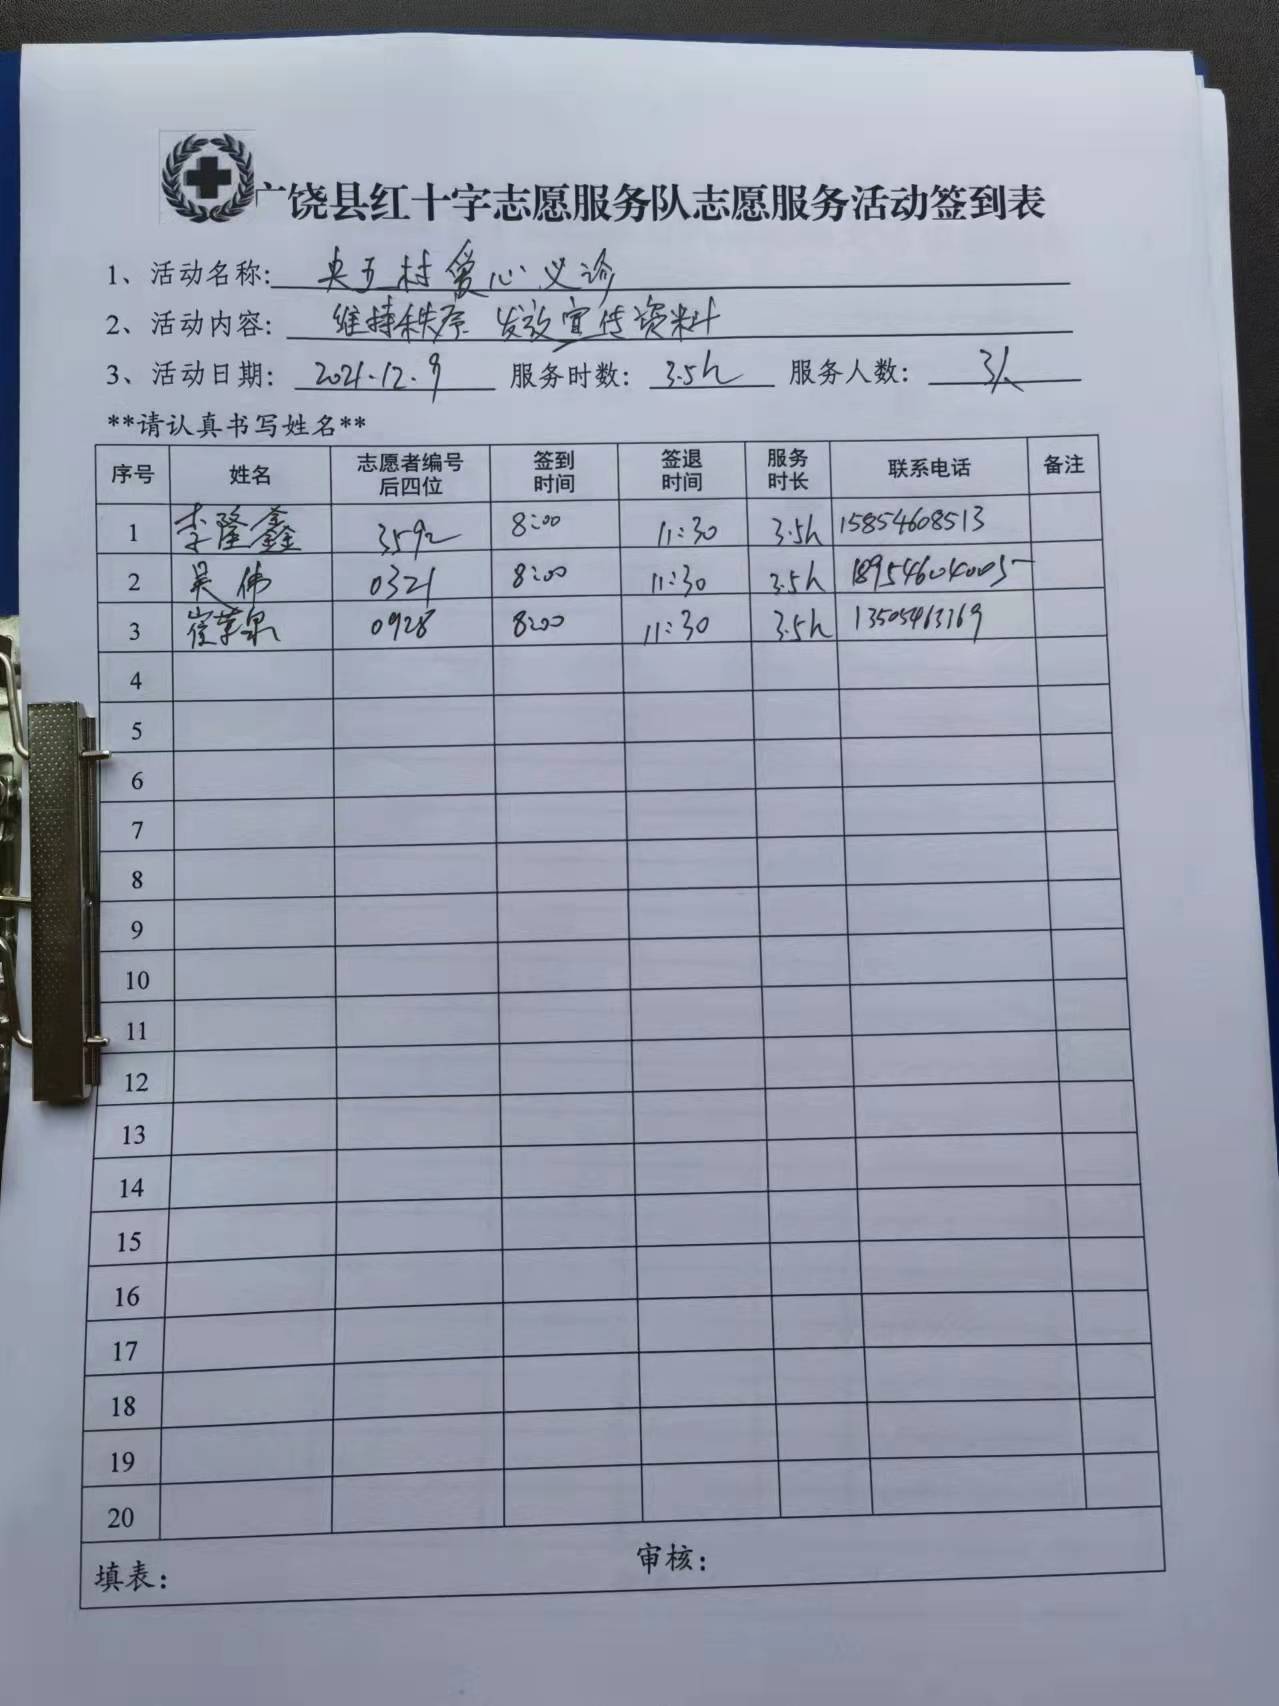 广饶县红十字志愿服务队志愿服务活动签到表
1、活动名称: 央五村爱心义诊
2、活动内容: 维持秩序 发放宣传资料
3、活动日期: 2021.12.9 服务时数: 3.5h 服务人数: 3人
**请认真书写姓名**
序号 姓名 志愿者编号后四位 签到时间 签退时间 服务时长 联系电话 备注
1 李隆鑫 3592 8:00 11:30 3.5h 15854608513
2 吴伟 0321 8:00 11:30 3.5h 18954604005
3 崔苹泉 0928 8:00 11:30 3.5h 13505463769
4
5
6
7
8
9
10
11
12
13
14
15
16
17
18
19
20
填表: 审核: